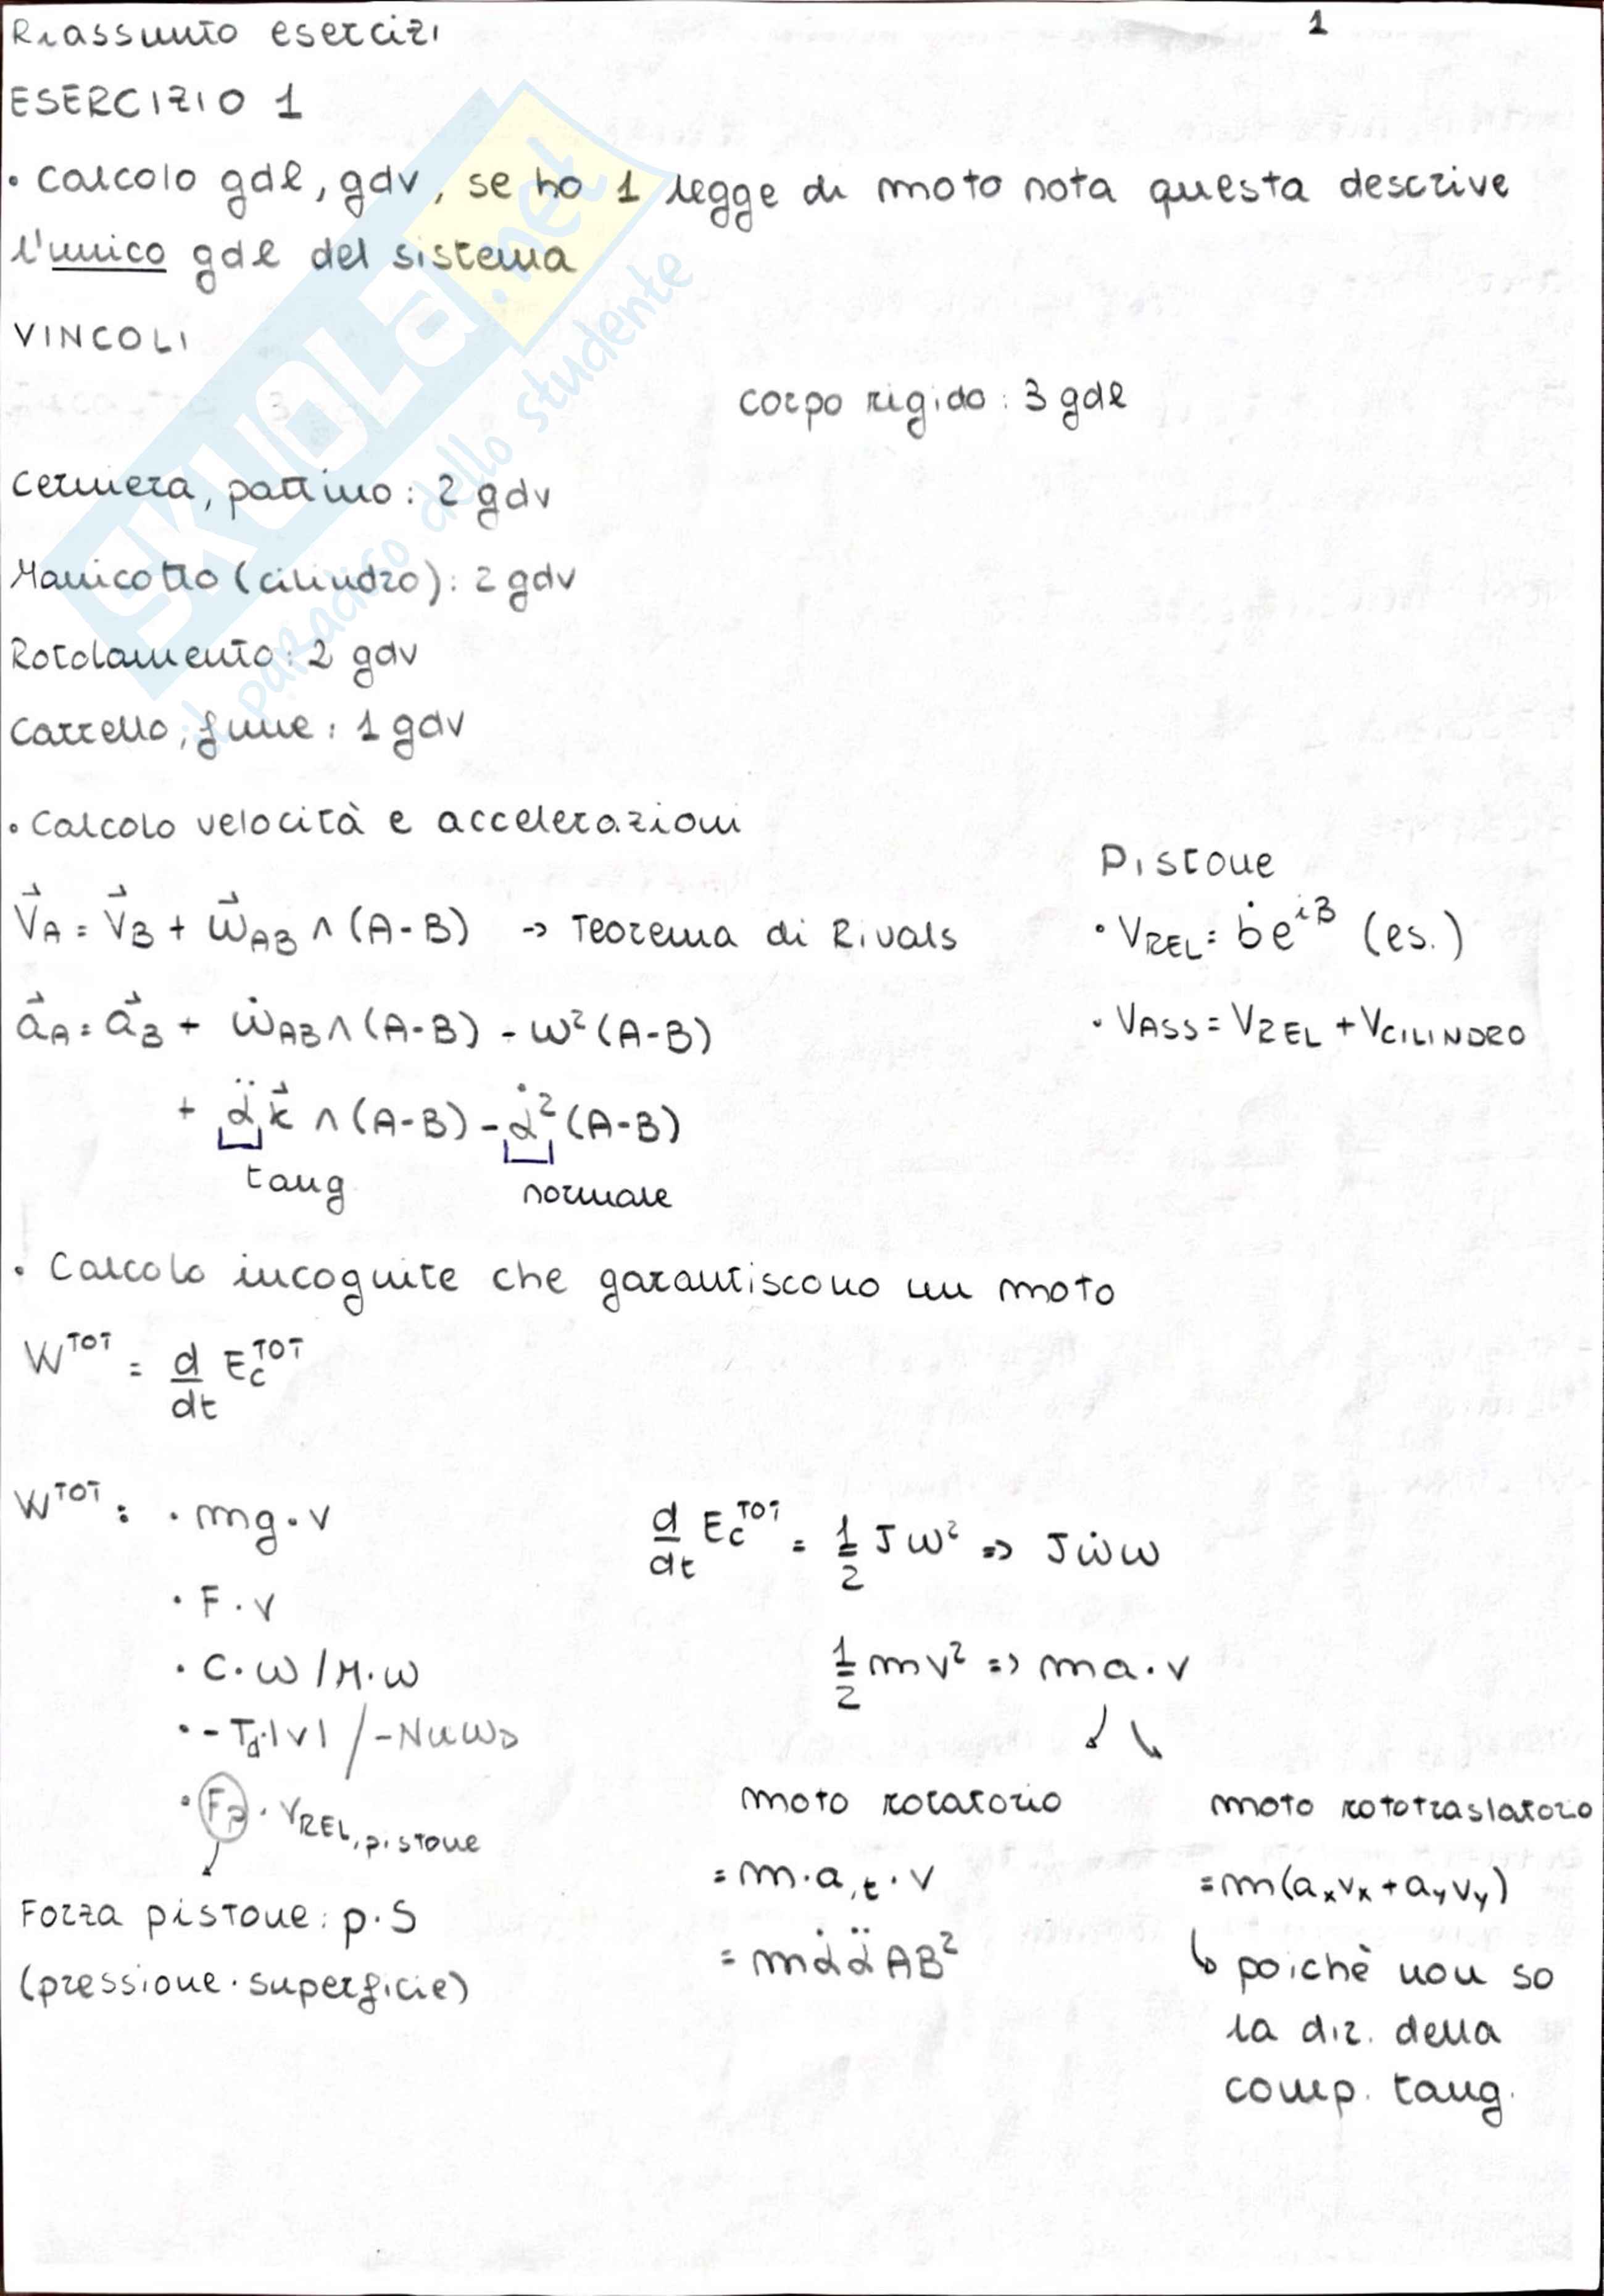 Riassunto esercizi
1
ESERCIZIO 1
• Calcolo gdl, gdv, se ho 1 legge di moto nota questa descrive
l'unico gdl del sistema
VINCOLI
corpo rigido: 3 gdl
Cerniera, pattino: 2 gdv
Manicotto (cilindro): 2 gdv
Rotolamento: 2 gdv
Carrello, fune: 1 gdv
• Calcolo velocità e accelerazioni
V⃗A = V⃗B + ω⃗AB ∧ (A-B) -> Teorema di Rivals
a⃗A = a⃗B + ω̇AB ∧ (A-B) - ω²(A-B)
+ α̈ k⃗ ∧ (A-B) - α̇² (A-B)
tang normale
Pistone
• VREL = ḃe^iβ (es.)
• VASS = VREL + VCILINDRO
• Calcolo incognite che garantiscono un moto
W^TOT = d/dt Ec^TOT
W^TOT: • mg · v
• F · v
• C · ω / M · ω
• - Td·|v| / -NuωD
• Fp · VREL, pistone
Forza pistone: p · S
(pressione · superficie)
d/dt Ec^TOT = 1/2 Jω² => Jω̇ω
1/2 mv² => ma · v
moto rotatorio
= m · a,t · v
= mα̇α̈AB²
moto rototraslatorio
= m(axvx + ayvy)
↳ poichè non so
la dir. della
comp. tang.
SKUOLA.net
il paradiso dello studente